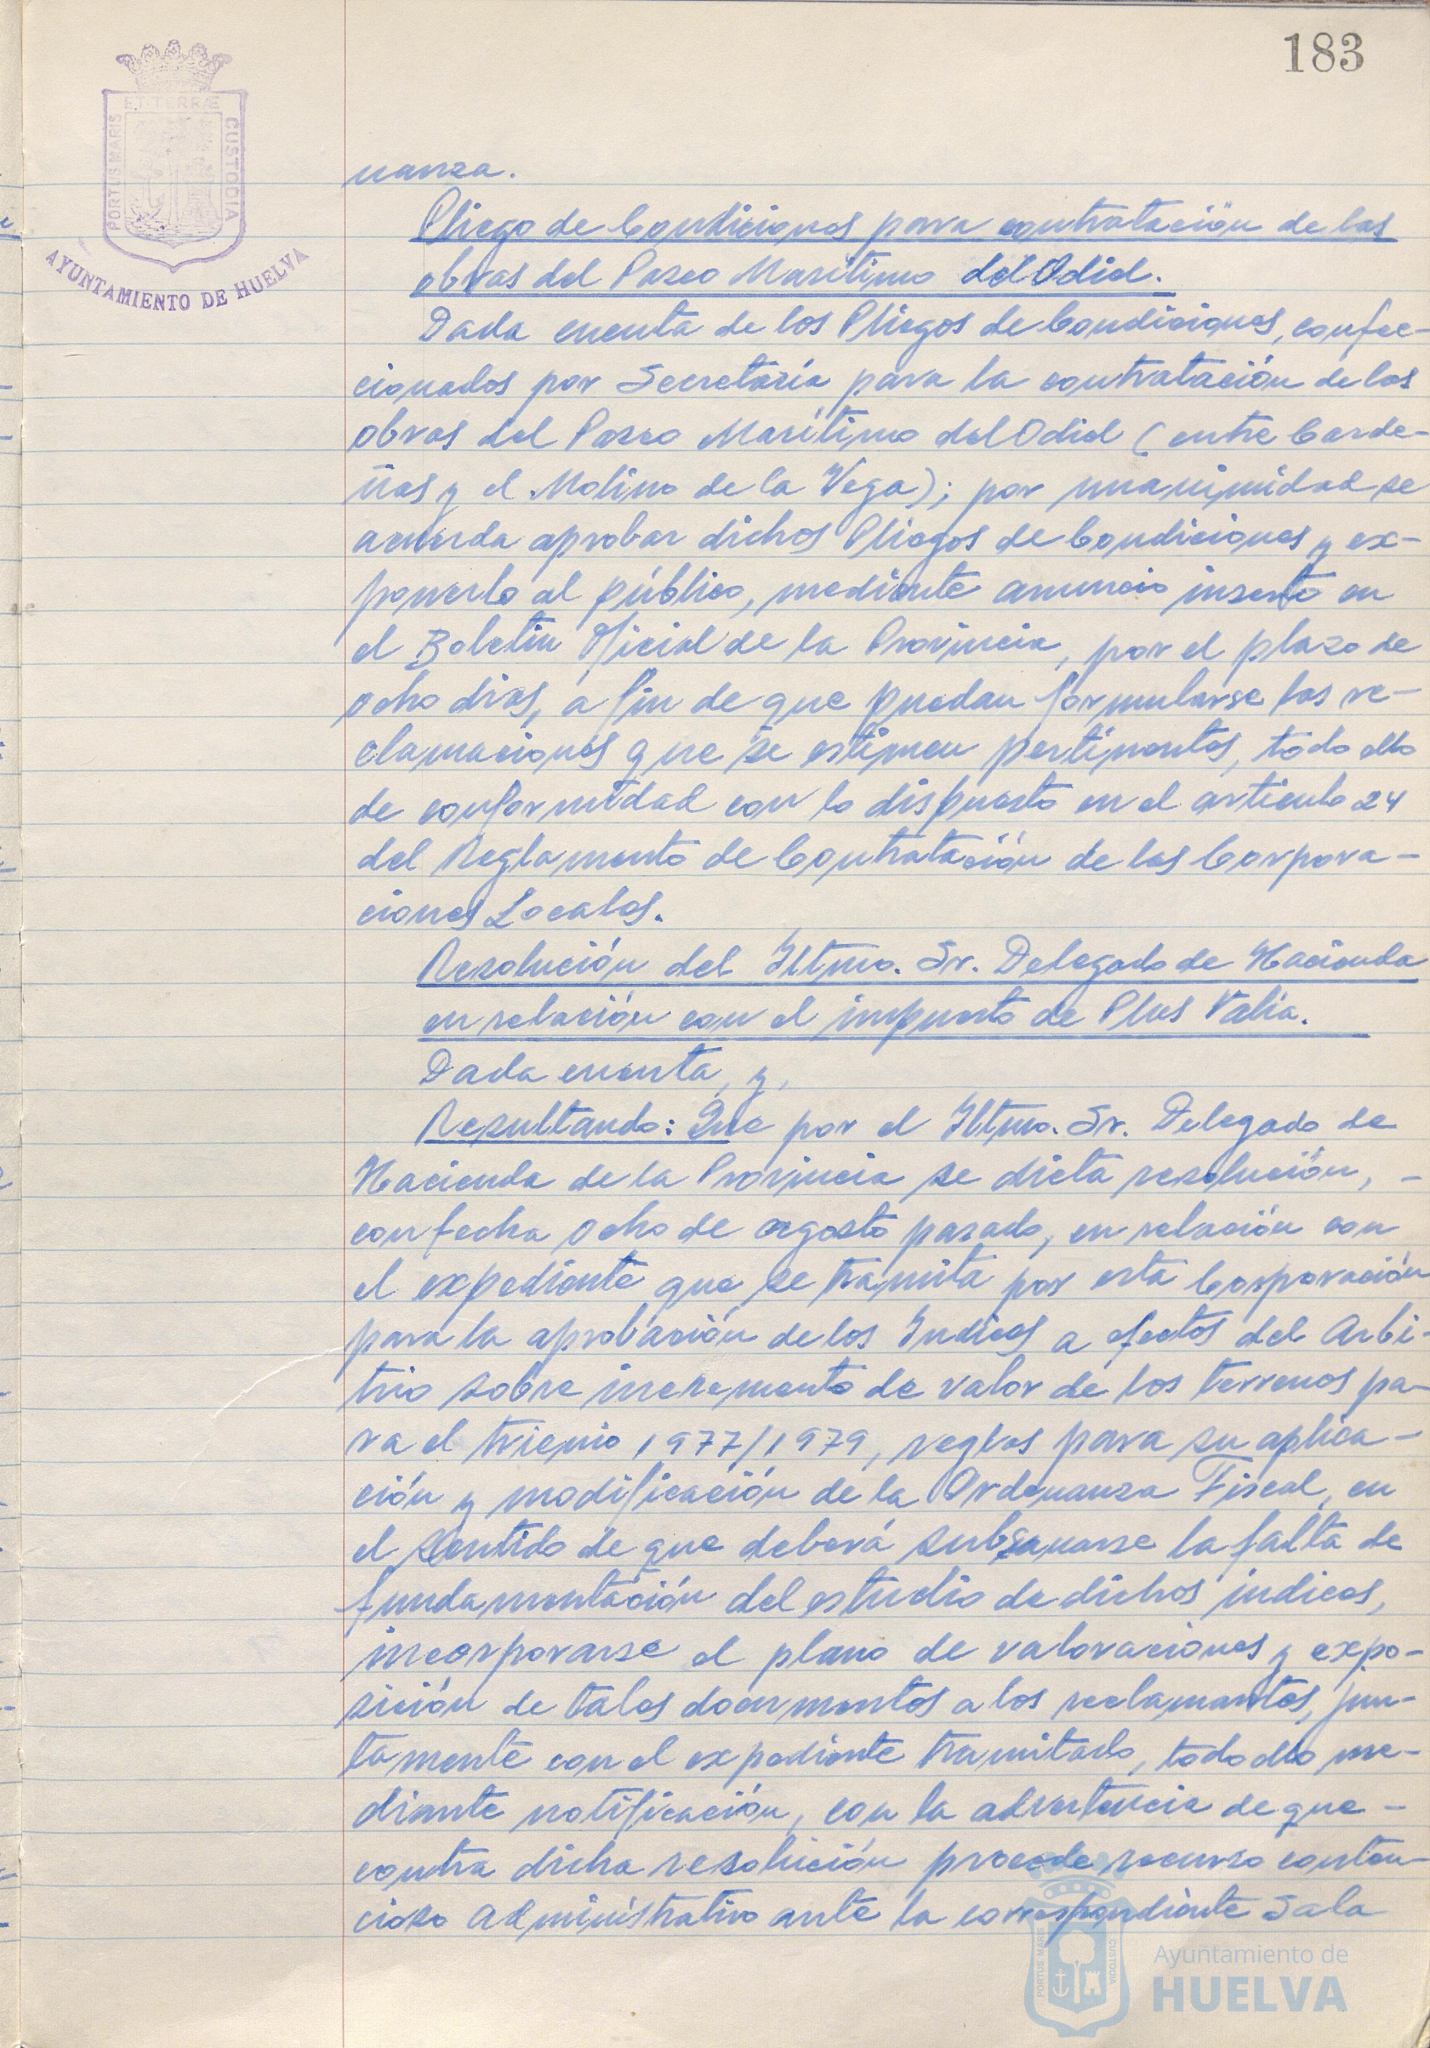 183
PORTUS MARIS
ET TERRÆ
CUSTODIA
AYUNTAMIENTO DE HUELVA
nanza.
Pliego de Condiciones para contratación de las
obras del Paseo Marítimo del Odiel.
Dada cuenta de los Pliegos de Condiciones, confec-
cionados por Secretaría para la contratación de las
obras del Paseo Marítimo del Odiel (entre Carde-
ñas y el Molino de la Vega); por unanimidad se
acuerda aprobar dichos Pliegos de Condiciones y ex-
ponerlo al público, mediante anuncio inserto en
el Boletin Oficial de la Provincia, por el plazo de
ocho dias, a fin de que puedan formularse las re-
clamaciones que se estimen pertinentes, todo ello
de conformidad con lo dispuesto en el articulo 24
del Reglamento de Contratación de las Corpora-
ciones Locales.
Resolución del Iltmo. Sr. Delegado de Hacienda
en relación con el impuesto de Plus Valía.
Dada cuenta, y,
Resultando: Que por el Iltmo. Sr. Delegado de
Hacienda de la Provincia se dicta resolución, -
con fecha ocho de agosto pasado, en relación con
el expediente que se tramita por esta Corporación
para la aprobación de los Indices a efectos del Arbi-
trio sobre incremento de valor de los terrenos pa-
ra el trienio 1977/1979, reglas para su aplica-
ción y modificación de la Ordenanza Fiscal, en
el sentido de que deberá subsanarse la falta de
fundamentación del estudio de dichos indices,
incorporarse el plano de valoraciones y expo-
sición de tales documentos a los reclamantes, jun-
tamente con el expediente tramitado, todo ello me-
diante notificación, con la advertencia de que -
contra dicha resolución procede recurso conten-
cioso administrativo ante la correspondiente Sala
PORTUS MARIS
CUSTODIA
Ayuntamiento de
HUELVA